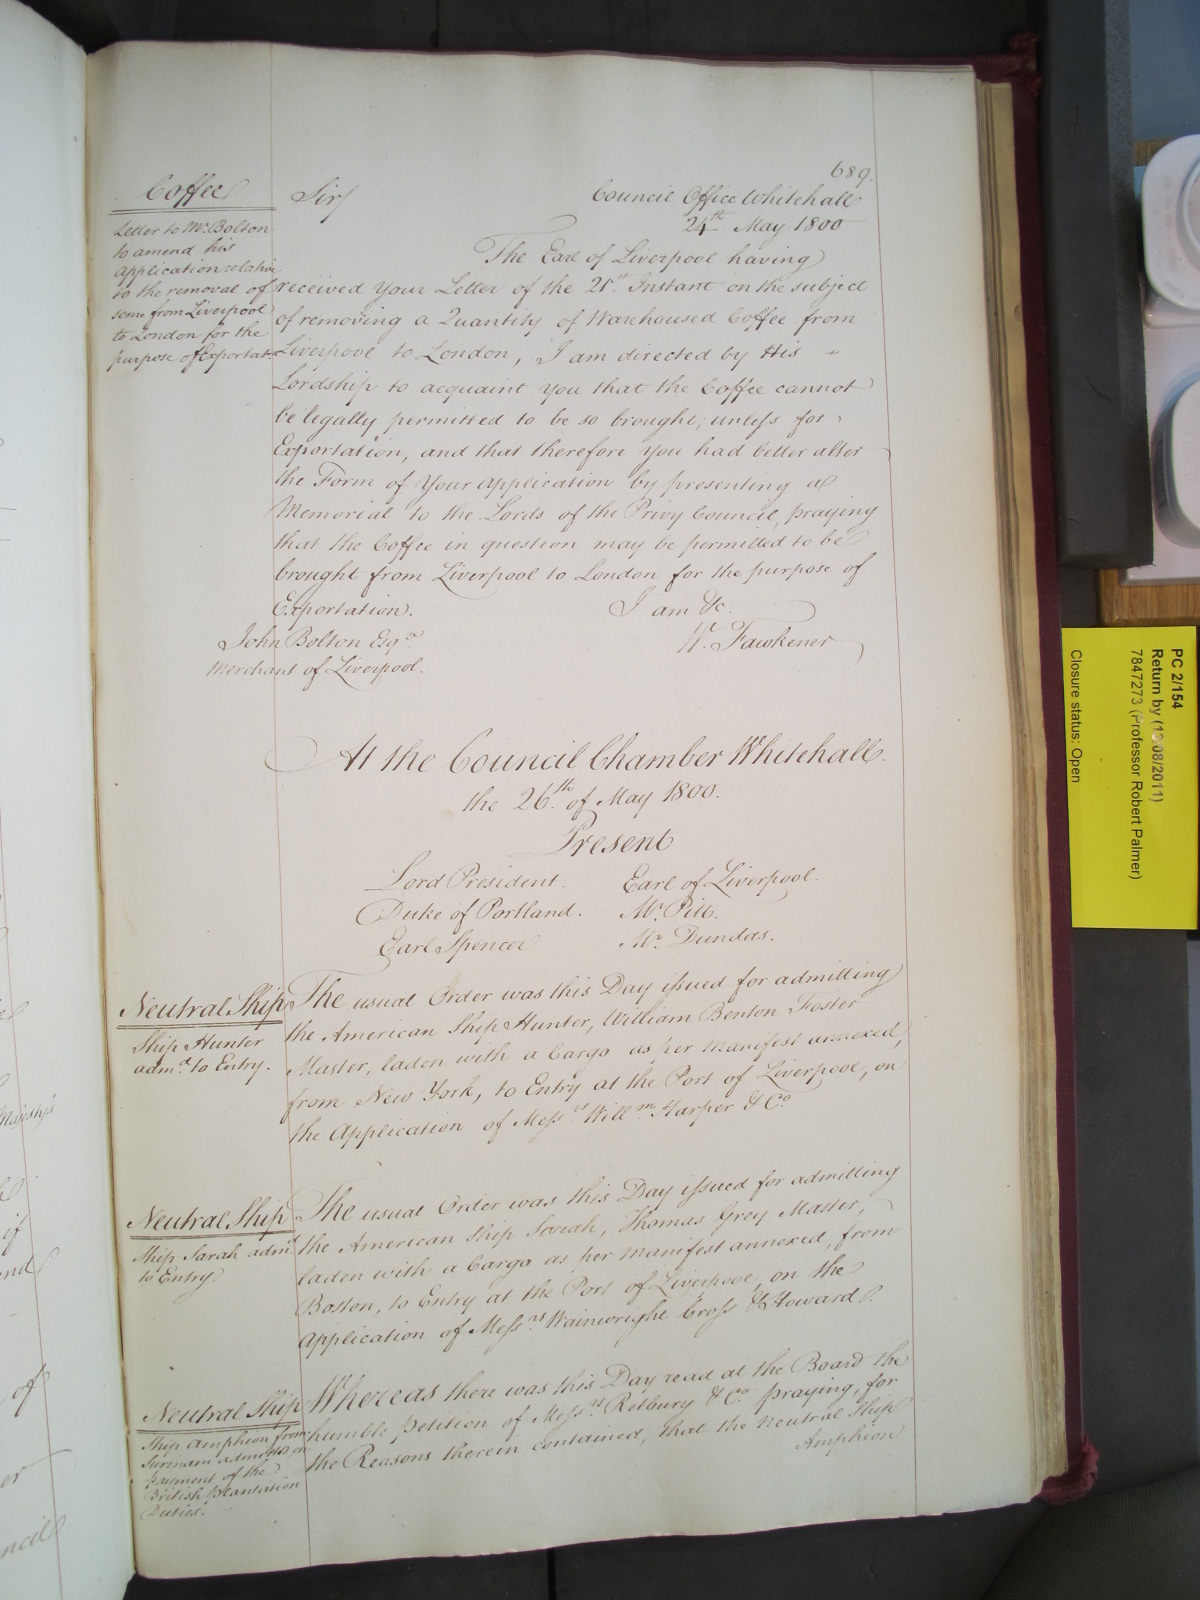 689.
Coffee
Letter to Mr. Bolton
to amend his
application relative
to the removal of
some from Liverpool
to London for the
purpose of Exportatn
Sir/
Council Office Whitehall
24th May 1800
The Earl of Liverpool having
received Your Letter of the 21st. Instant on the subject
of removing a Quantity of Warehoused Coffee from
Liverpool to London, I am directed by His -
Lordship to acquaint you that the Coffee cannot
be legally permitted to be so brought, unless for
Exportation, and that therefore you had better alter
the Form of Your application by presenting a
Memorial to the Lords of the Privy Council, praying
that the Coffee in question may be permitted to be
brought from Liverpool to London for the purpose of
Exportation. I am &c.
John Bolton Esqre W. Fawkener
Merchant of Liverpool.
At the Council Chamber Whitehall.
the 26th. of May 1800.
Present
Lord President. Earl of Liverpool.
Duke of Portland. Mr. Pitt.
Earl Spencer Mr. Dundas.
Neutral Ship
Ship Hunter
admd. to Entry.
The usual Order was this Day issued for admitting
the American Ship Hunter, William Benton Foster
Master, laden with a Cargo as per Manifest annexed,
from New York, to Entry at the Port of Liverpool, on
the Application of Messrs. Willm. Harper & Co.
Neutral Ship
Ship Sarah admd.
to Entry
The usual Order was this Day issued for admitting
the American Ship Sarah, Thomas Grey Master,
laden with a Cargo as per Manifest annexed, from
Boston, to Entry at the Port of Liverpool, on the
Application of Messrs. Wainwright Cross & Howard.
Neutral Ship
Ship Amphion from
Surinam admitted on
payment of the
British Plantation
Duties.
Whereas there was this Day read at the Board the
humble Petition of Messrs. Retbury & Co. praying, for
the Reasons therein contained, that the Neutral Ship
Amphion
PC 2/154
Return by (15/08/2011)
7847273 (Professor Robert Palmer)
Closure status: Open
Majesty's
if
of
er